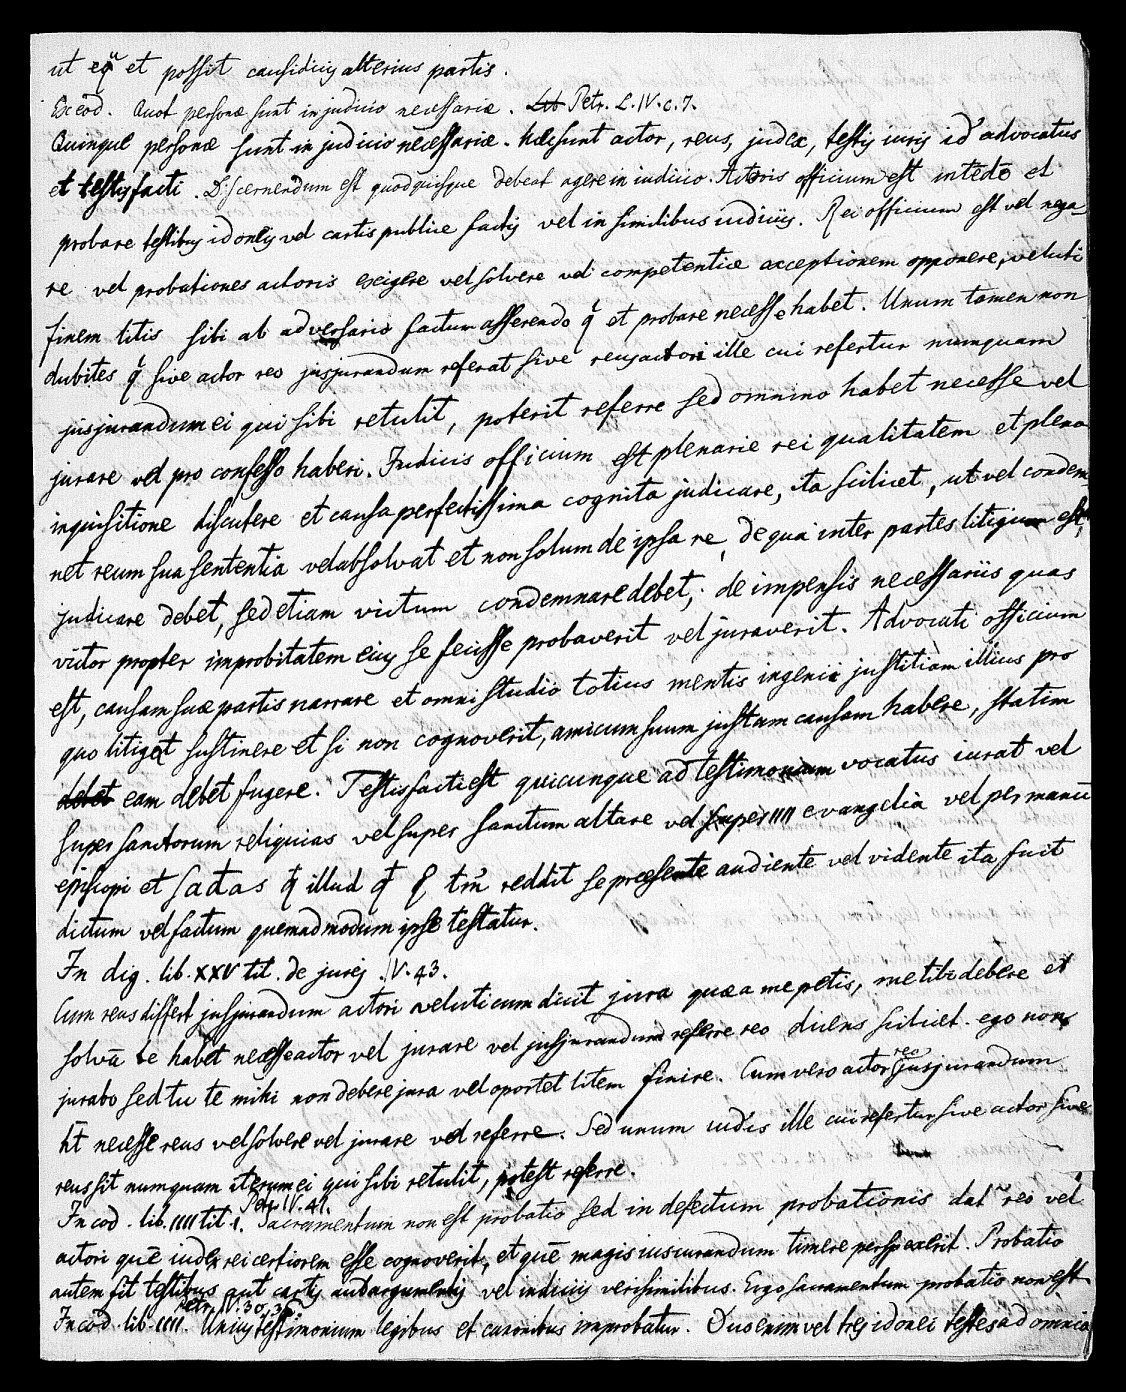 ut eqͣ et possit causidicus alterius partis.
Ex cod. Quot personæ sunt in judicio necessariæ. Lib Petr. L. IV. c. 7.
Quinque personæ sunt in judicio necessariæ. Hæc sunt actor, reus, judex, testis iuris id̓ advocatus
et testis facti. Discernendum est quod quisque debeat agere in iudicio. Actoris officium est intēdē et
probare testibus idoneis vel cartis publice factis vel in similibus iudiciis. Rei officium est vel nega-
re vel probationes actoris exigere vel solvere vel competenticæ exceptionem opponere, veluti
finem litis sibi ab adversario factum asserendo q̄ et probare necesse habet. Unum tamen non
dubites q̄ sive actor reo jusjurandum referat sive reus actori ille cui refertur numquam
jusjurandum ei qui sibi retulit, poterit referre sed omnino habet necesse vel
jurare vel pro confesso haberi. Judicis officium est plenarie rei qualitatem et plena
inquisitione discutere et causa perfectissima cognita judicare, ita scilicet, ut vel condem-
net reum sua sententia vel absolvat et non solum de ipsa re, de qua inter partes litigium est,
judicare debet, sed etiam victum condemnare debet; de impensis necessariis quas
victor propter improbitatem eius se fecisse probaverit vel juraverit. Advocati officium
est, causam suæ partis narrare et omni studio totius mentis ingenii justitiam illius pro
quo litigat sustinere et si non cognoverit, amicum suum justam causam habere, statim
debet eam debet fugere. Testis facti est quicunque ad testimonium vocatus iurat vel
super sanctorum reliquias vel super sanctum altare vel super IIII evangelia vel per manū
episcopi et sadas q̄ illud q̄ p tm̄ reddit se præsente audiente vel vidente ita fuit
dictum vel factum quemadmodum ipse testatur.
In dig. lib. XXV tit. de jurej. IV. 43.
Cum reus differt jusjurandum actori veluti cum dicit jura quæ a me petis, me tibi debere et
solvā te habet necesse actor vel jurare vel jusjurandum referre reo dicens scilicet. ego non
jurabo sed tu te mihi non debere jura vel oportet litem finire. Cum vero actor reo jusjurandum
h̄t necesse reus vel solvere vel jurare vel referre. Sed unum vid̓is ille cui refertur sive actor sive
reus sit numquam iterum ei qui sibi retulit, potest referre.
Petr IV. 41.
In cod. lib. IIII tit. 1. Sacramentum non est probatio sed in defectum probationis dat̃ reo vel
actori quē iudex rei certiorem esse cognoverit, et quē magis iusiurandum timere perspexerit. Probatio
autem fit testibus aut cartis aut argumentis vel indiciis verisimilibus. Ergo sacramentum probatio non est
Petr. IV. 30, 36.
In cod. lib. IIII. Unius testimonium legibus et canonibus improbatur. Duo enim vel tres idonei testes ad omnia